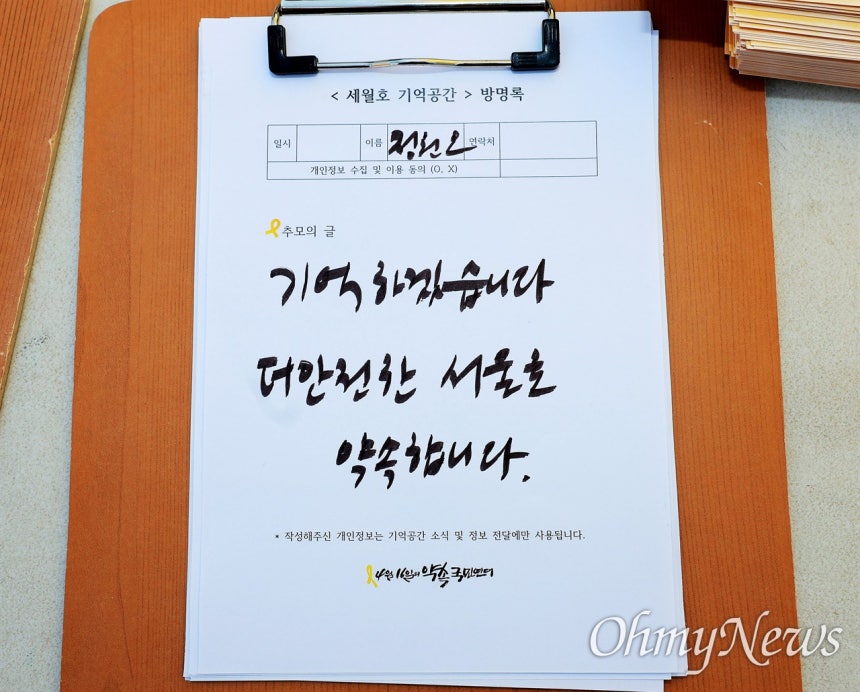 < 세월호 기억공간 > 방명록
일시 이름 정원오 연락처
개인정보 수집 및 이용 동의 (O, X)
추모의 글
기억하겠습니다
더안전한 서울로
약속합니다.
* 작성해주신 개인정보는 기억공간 소식 및 정보 전달에만 사용됩니다.
4월 16일의 약속 국민연대
OhmyNews